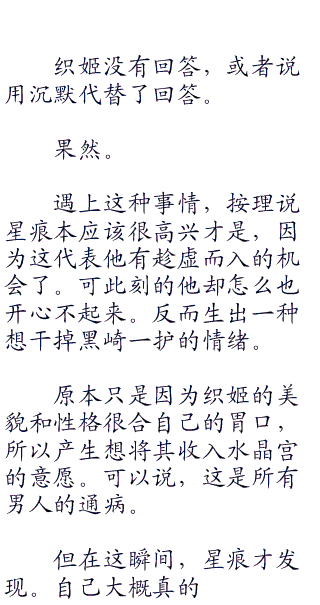 织姬没有回答，或者说
用沉默代替了回答。
果然。
遇上这种事情，按理说
星痕本应该很高兴才是，因
为这代表他有趁虚而入的机
会了。可此刻的他却怎么也
开心不起来。反而生出一种
想干掉黑崎一护的情绪。
原本只是因为织姬的美
貌和性格很合自己的胃口，
所以产生想将其收入水晶宫
的意愿。可以说，这是所有
男人的通病。
但在这瞬间，星痕才发
现。自己大概真的